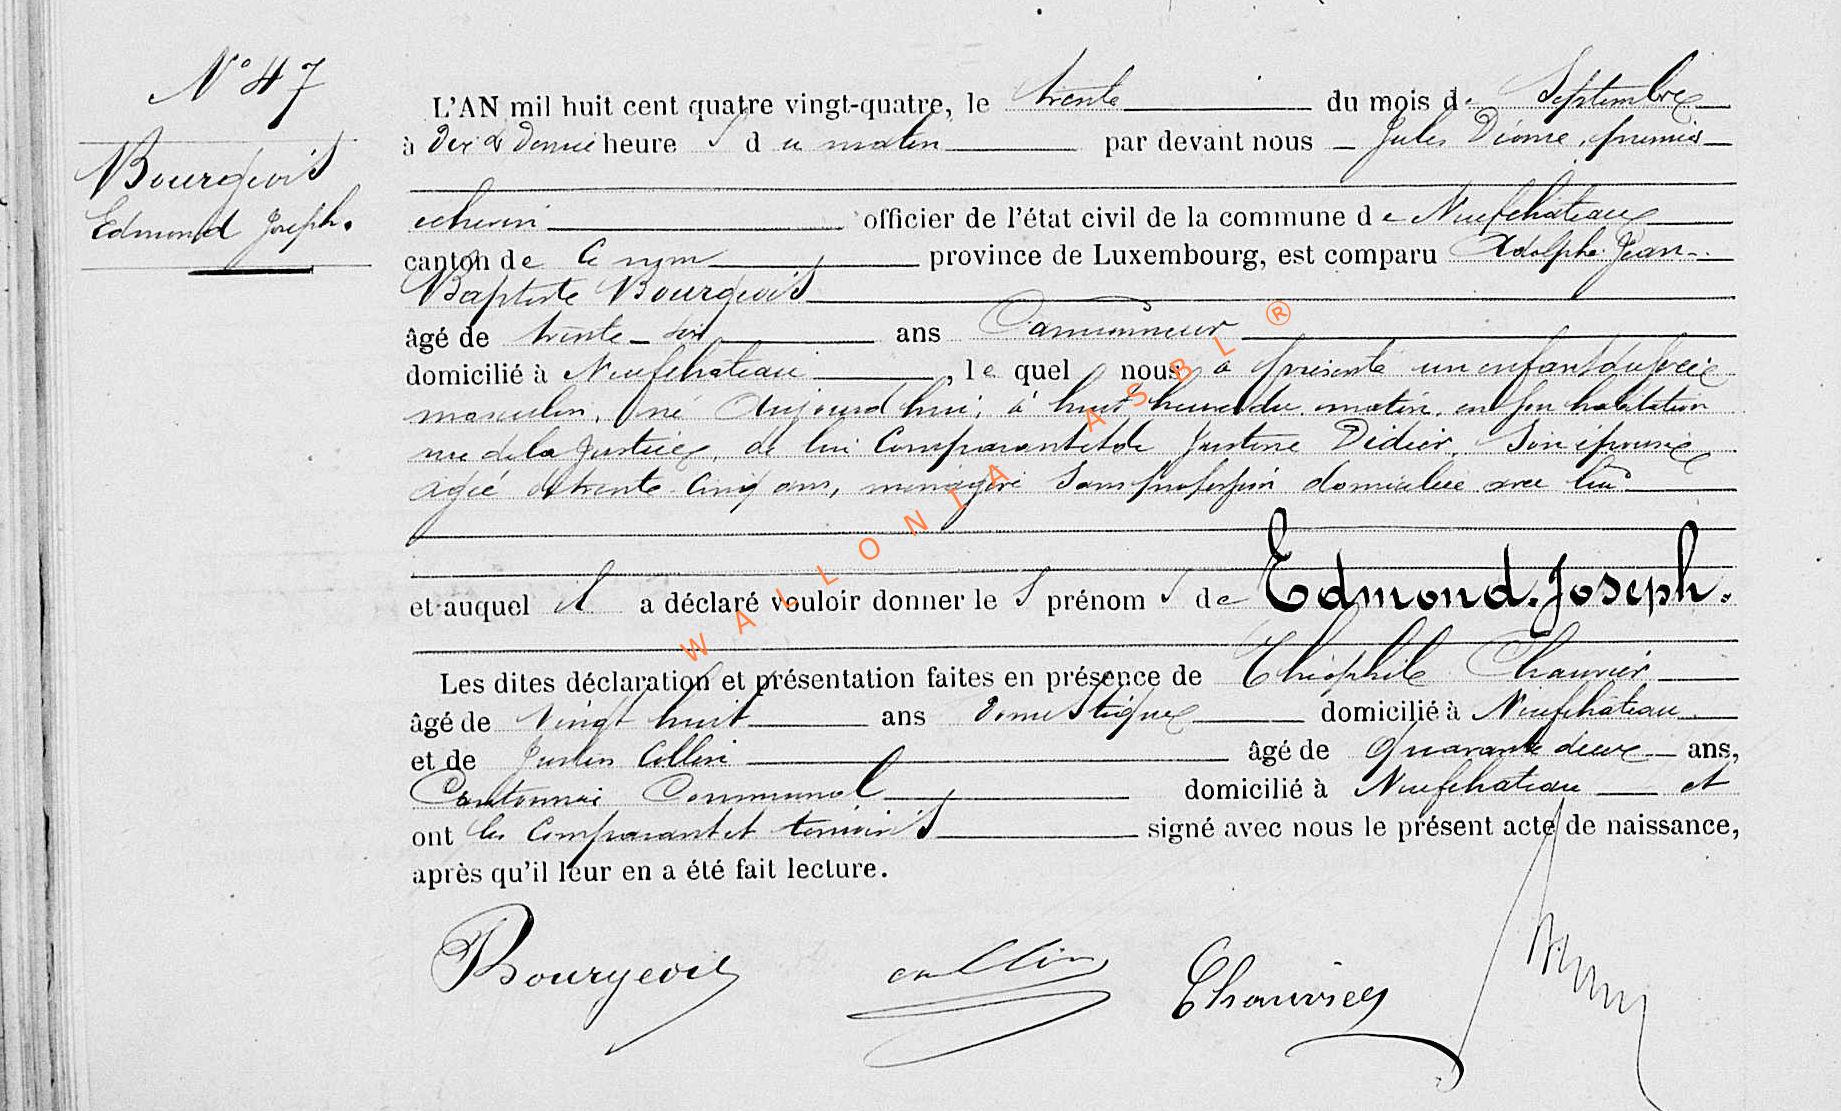 N° 47
Bourgeois
Edmond Joseph.
L'AN mil huit cent quatre vingt-quatre, le trente du mois de Septembre
à Dix & Demie heure s du matin par devant nous Jules Diome, premier
échevin officier de l'état civil de la commune de Neufchâteau
canton de ce nom province de Luxembourg, est comparu Adolphe Jean-
Baptiste Bourgeois
âgé de trente-six ans Camionneur
domicilié à Neufchâteau, le quel nous a présenté un enfant du sexe
masculin, né Aujourd'hui, à huit heures du matin, en son habitation
rue de la Justice, de lui Comparant et de Justine Didier, Son épouse
agée de trente Cinq ans, ménagère Sans profession domiciliée avec lui
et auquel il a déclaré vouloir donner le s prénom s de Edmond. Joseph.
Les dites déclaration et présentation faites en présence de Théophile Chauvier
âgé de Vingt huit ans Domestique domicilié à Neufchâteau
et de Justin Collin âgé de Quarante deux ans,
Cantonnier Communal domicilié à Neufchâteau et
ont les Comparant et témoins signé avec nous le présent acte de naissance,
après qu'il leur en a été fait lecture.
Bourgeois collin Chauvier
WALLONIA ASBL ®